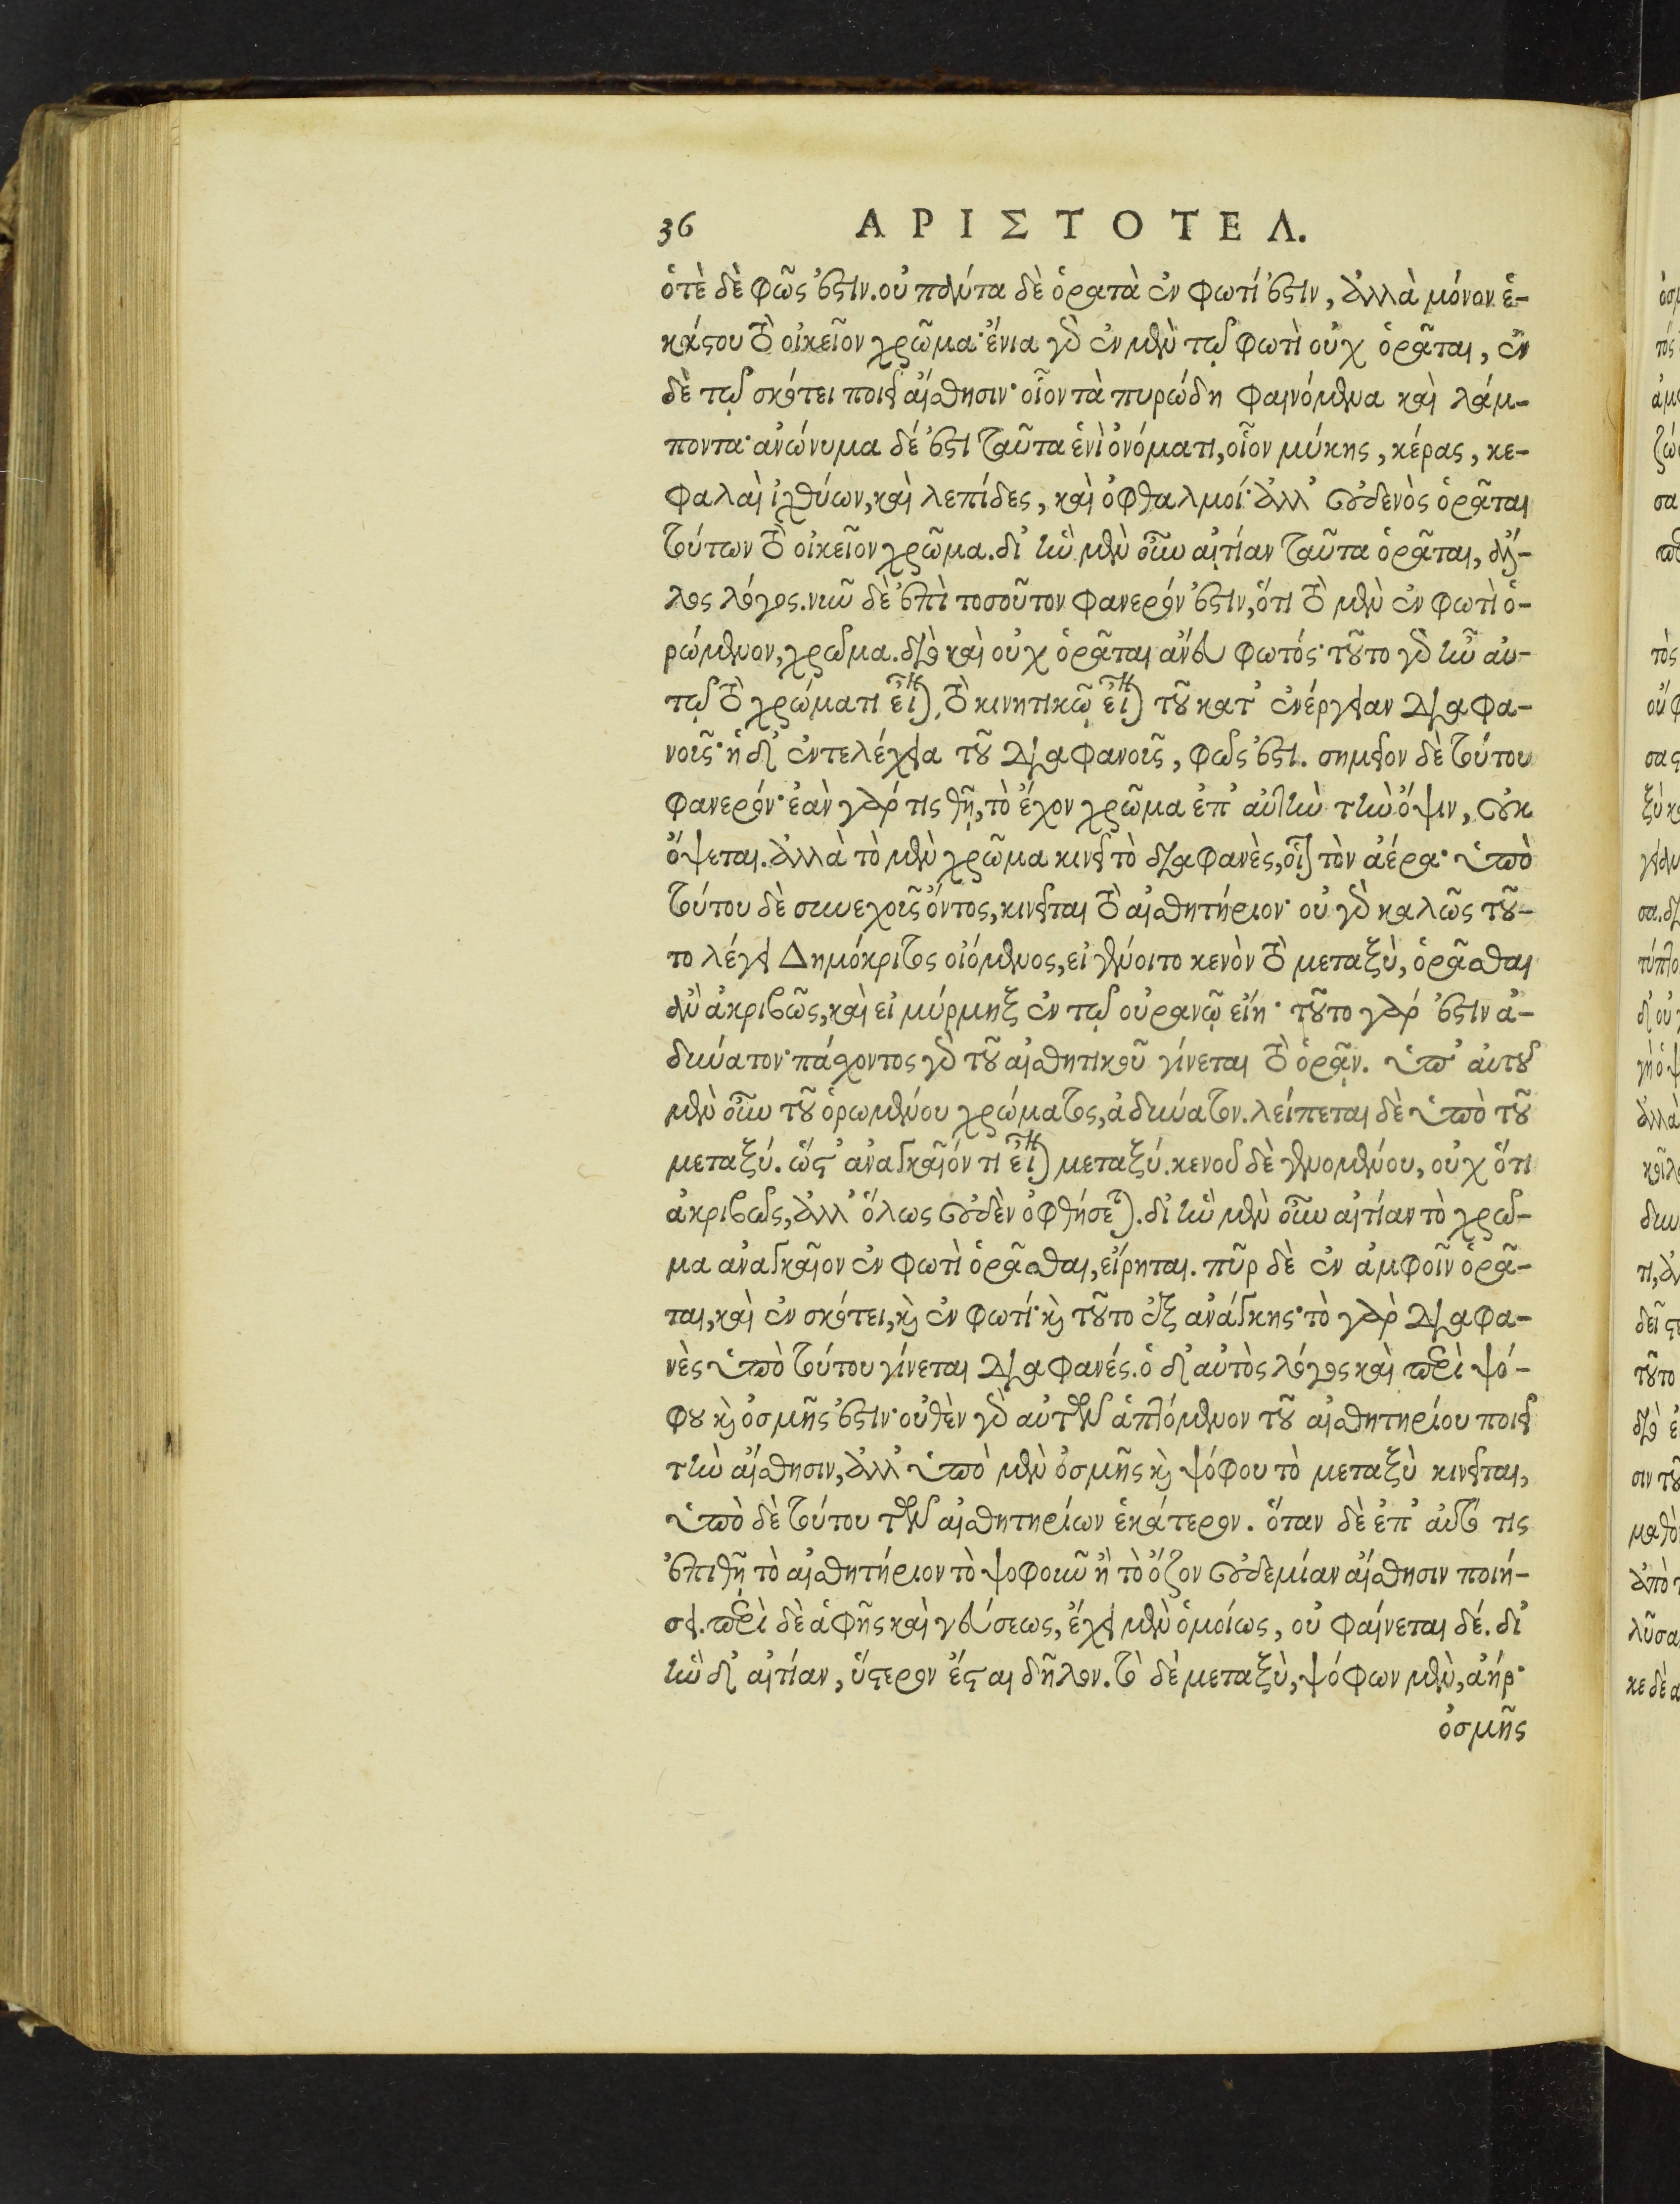 36 ΑΡΙΣΤΟΤΕΛ.
ὁτὲ δὲ φῶς ἐστιν. οὐ πάντα δὲ ὁρατὰ ἐν φωτί ἐστιν, ἀλλὰ μόνον ἑ-
κάστου τὸ οἰκεῖον χρῶμα· ἔνια γὰρ ἐν μὲν τῷ φωτὶ οὐχ ὁρᾶται, ἐν
δὲ τῷ σκότει ποιεῖ αἴσθησιν· οἷον τὰ πυρώδη φαινόμενα καὶ λάμ-
ποντα· ἀνώνυμα δέ ἐστι ταῦτα ἑνὶ ὀνόματι, οἷον μύκης, κέρας, κε-
φαλαὶ ἰχθύων, καὶ λεπίδες, καὶ ὀφθαλμοί· ἀλλ' οὐδενὸς ὁρᾶται
τούτων τὸ οἰκεῖον χρῶμα. δι' ἣν μὲν οὖν αἰτίαν ταῦτα ὁρᾶται, ἄλ-
λος λόγος. νῦν δὲ ἐπὶ τοσοῦτον φανερόν ἐστιν, ὅτι τὸ μὲν ἐν φωτὶ ὁ-
ρώμενον, χρῶμα. διὸ καὶ οὐχ ὁρᾶται ἄνευ φωτός· τοῦτο γὰρ ἦν αὐ-
τῷ τὸ χρώματι εἶναι, τὸ κινητικῷ εἶναι τοῦ κατ' ἐνέργειαν διαφα-
νοῦς· ἡ δ' ἐντελέχεια τοῦ διαφανοῦς, φῶς ἐστι. σημεῖον δὲ τούτου
φανερόν· ἐὰν γάρ τις θῇ, τὸ ἔχον χρῶμα ἐπ' αὐτὴν τὴν ὄψιν, οὐκ
ὄψεται. ἀλλὰ τὸ μὲν χρῶμα κινεῖ τὸ διαφανὲς, οἷον τὸν ἀέρα· ὑπὸ
τούτου δὲ συνεχοῦς ὄντος, κινεῖται τὸ αἰσθητήριον· οὐ γὰρ καλῶς τοῦ-
το λέγει Δημόκριτος οἰόμενος, εἰ γένοιτο κενὸν τὸ μεταξὺ, ὁρᾶσθαι
ἂν ἀκριβῶς, καὶ εἰ μύρμηξ ἐν τῷ οὐρανῷ εἴη· τοῦτο γάρ ἐστιν ἀ-
δύνατον· πάσχοντος γὰρ τοῦ αἰσθητικοῦ γίνεται τὸ ὁρᾷν. ὑπ' αὐτοῦ
μὲν οὖν τοῦ ὁρωμένου χρώματος, ἀδύνατον. λείπεται δὲ ὑπὸ τοῦ
μεταξύ. ὥστ' ἀναγκαῖόν τι εἶναι μεταξύ. κενοῦ δὲ γενομένου, οὐχ ὅτι
ἀκριβῶς, ἀλλ' ὅλως οὐδὲν ὀφθήσεται. δι' ἣν μὲν οὖν αἰτίαν τὸ χρῶ-
μα ἀναγκαῖον ἐν φωτὶ ὁρᾶσθαι, εἴρηται. πῦρ δὲ ἐν ἀμφοῖν ὁρᾶ-
ται, καὶ ἐν σκότει, καὶ ἐν φωτί· καὶ τοῦτο ἐξ ἀνάγκης· τὸ γὰρ διαφα-
νὲς ὑπὸ τούτου γίνεται διαφανές. ὁ δ' αὐτὸς λόγος καὶ περὶ ψό-
φου καὶ ὀσμῆς ἐστιν· οὐθὲν γὰρ αὐτῶν ἁπτόμενον τοῦ αἰσθητηρίου ποιεῖ
τὴν αἴσθησιν, ἀλλ' ὑπὸ μὲν ὀσμῆς καὶ ψόφου τὸ μεταξὺ κινεῖται,
ὑπὸ δὲ τούτου τῶν αἰσθητηρίων ἑκάτερον. ὅταν δὲ ἐπ' αὐτό τις
ἐπιθῇ τὸ αἰσθητήριον τὸ ψοφοῦν ἢ τὸ ὄζον οὐδεμίαν αἴσθησιν ποιή-
σει. περὶ δὲ ἁφῆς καὶ γεύσεως, ἔχει μὲν ὁμοίως, οὐ φαίνεται δέ. δι'
ἣν δ' αἰτίαν, ὕστερον ἔσται δῆλον. τὸ δὲ μεταξὺ, ψόφων μὲν, ἀήρ·
ὀσμῆς